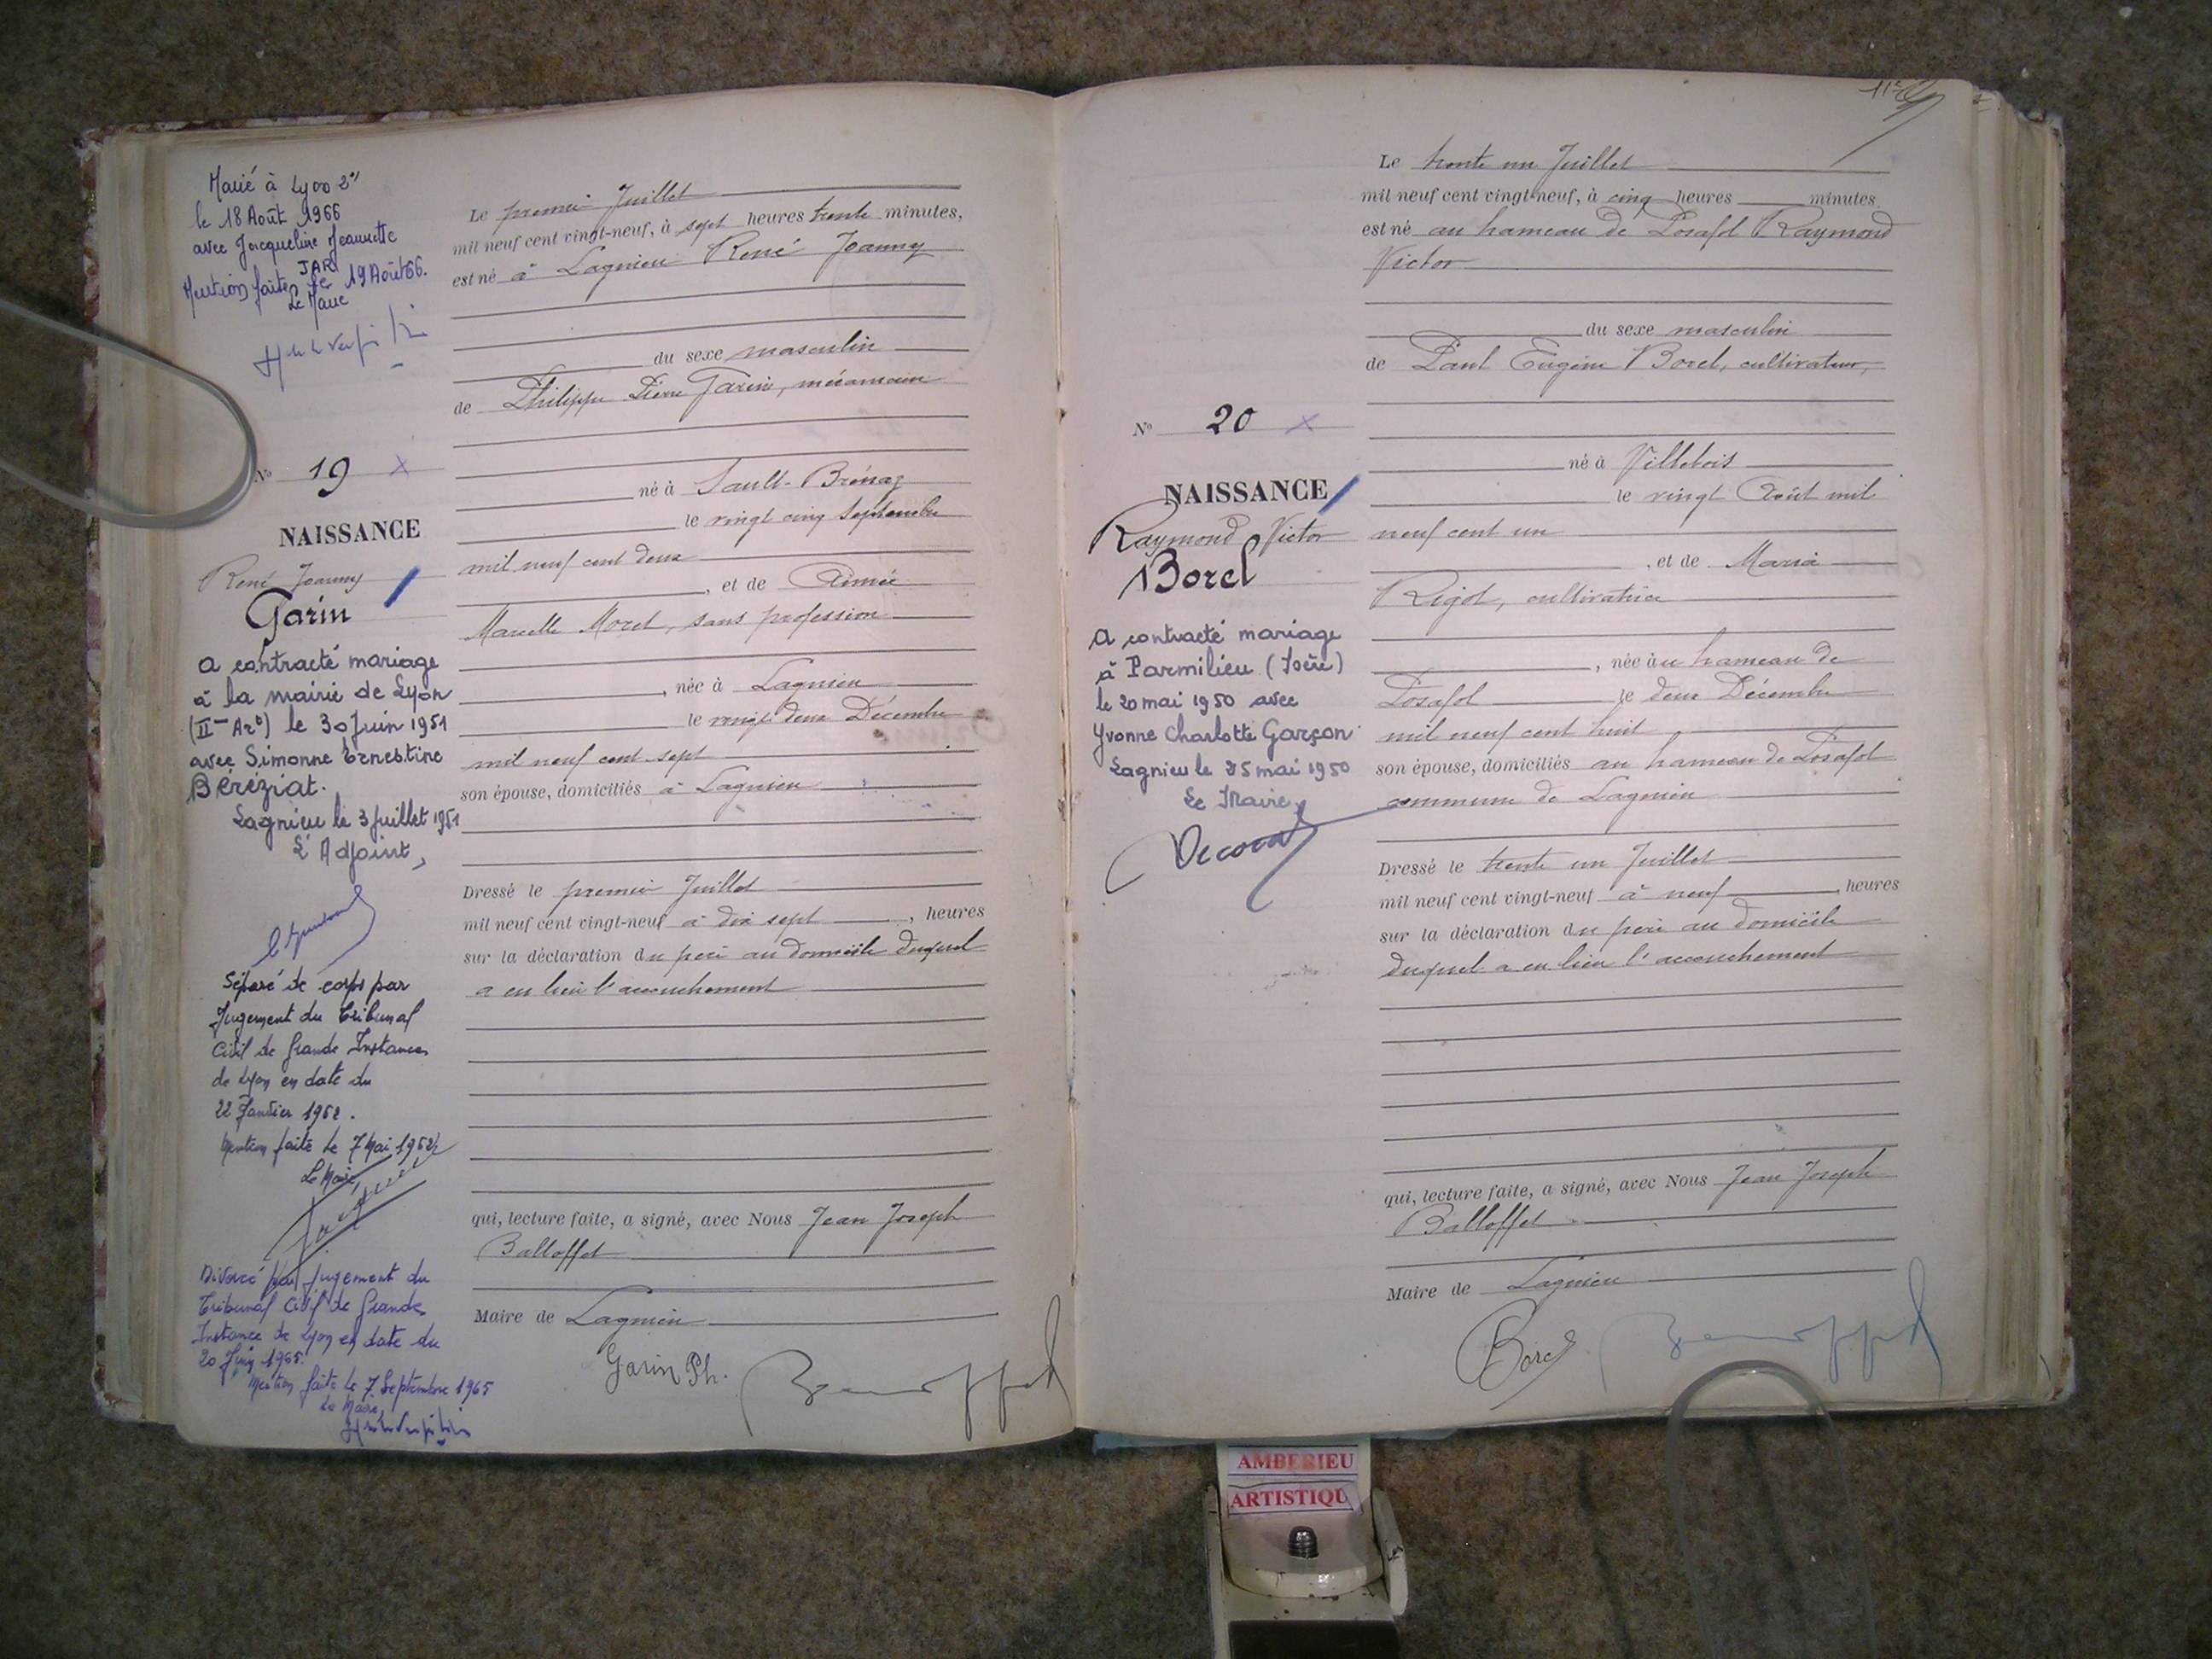 Marié à Lyon 2e
le 18 Août 1966
avec Jacqueline Jeannette
JAR
Mention faite le 19 Août 66.
Le Maire
No 19
NAISSANCE
René Joanny
Garin
a contracté mariage
à la mairie de Lyon
(IIme Art) le 30 Juin 1951
avec Simonne Ernestine
Béréziat.
Lagnieu le 3 juillet 1951
L'Adjoint,
Séparé de corps par
Jugement du Tribunal
Civil de Grande Instance
de Lyon en date du
22 Janvier 1962.
Mention faite le 7 Mai 1962
Le Maire,
Divorcé par jugement du
Tribunal Civil de Grande
Instance de Lyon en date du
20 Juin 1965.
Mention faite le 7 Septembre 1965
Le Maire,
Le premier Juillet
mil neuf cent vingt-neuf, à sept heures trente minutes,
est né à Lagnieu René Joanny
du sexe masculin
de Philippe Pierre Garin, mécanicien
né à Sault-Brénaz
le vingt cinq Septembre
mil neuf cent deux
, et de Aimée
Marcelle Morel, sans profession
, née à Lagnieu
le vingt deux Décembre
mil neuf cent sept
son épouse, domiciliés à Lagnieu
Dressé le premier Juillet
mil neuf cent vingt-neuf à dix sept , heures
sur la déclaration du père au domicile duquel
a eu lieu l'accouchement
qui, lecture faite, a signé, avec Nous Jean Joseph
Balloffet
Maire de Lagnieu
Garin Ph.
No 20
NAISSANCE
Raymond Victor
Borel
a contracté mariage
à Parmilieu (Isère)
le 20 mai 1950 avec
Yvonne Charlotte Garçon
Lagnieu le 25 mai 1950
Le Maire,
Le trente un Juillet
mil neuf cent vingt-neuf, à cinq heures minutes
est né au hameau de Posafol Raymond
Victor
du sexe masculin
de Paul Eugène Borel, cultivateur,
né à Villebois
le vingt Août mil
neuf cent un
, et de Maria
Rigot, cultivatrice
, née au hameau de
Posafol le deux Décembre
mil neuf cent huit
son épouse, domiciliés au hameau de Posafol
commune de Lagnieu
Dressé le trente un Juillet
mil neuf cent vingt-neuf à neuf , heures
sur la déclaration du père au domicile
duquel a eu lieu l'accouchement
qui, lecture faite, a signé, avec Nous Jean Joseph
Balloffet
Maire de Lagnieu
Borel
AMBERIEU
ARTISTIQU